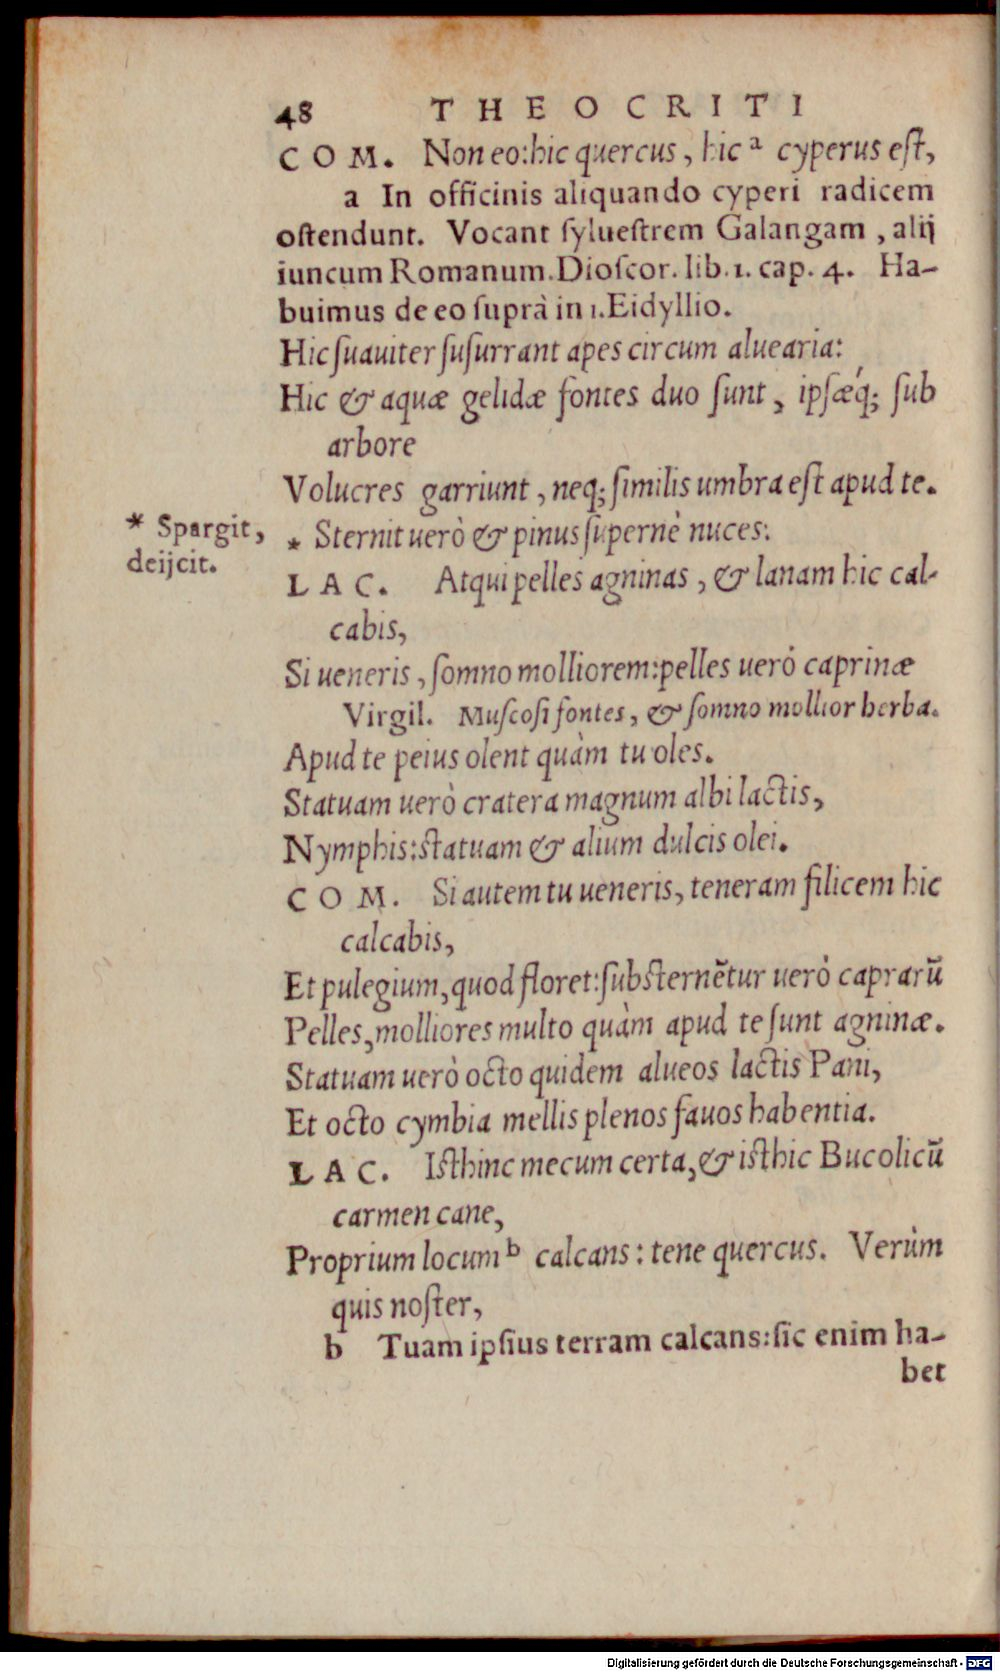 48 THEOCRITI
COM. Non eo: hic quercus, hic ᵃ cyperus eſt,
a In officinis aliquando cyperi radicem
oſtendunt. Vocant ſylueſtrem Galangam, alij
iuncum Romanum. Dioſcor. lib. 1. cap. 4. Ha-
buimus de eo ſuprà in 1. Eidyllio.
Hic ſuauiter ſuſurrant apes circum aluearia:
Hic & aquæ gelidæ fontes duo ſunt, ipſæq́; ſub
arbore
Volucres garriunt, neq; ſimilis umbra eſt apud te.
* Spargit,
deijcit.
* Sternit uerò & pinus ſupernè nuces:
LAC. Atqui pelles agninas, & lanam hic cal-
cabis,
Si ueneris, ſomno molliorem: pelles uerò caprinæ
Virgil. Muſcoſi fontes, & ſomno mollior herba.
Apud te peius olent quàm tu oles.
Statuam uerò cratera magnum albi lactis,
Nymphis: ſtatuam & alium dulcis olei.
COM. Si autem tu ueneris, teneram filicem hic
calcabis,
Et pulegium, quod floret: ſubſternẽtur uerò caprarũ
Pelles, molliores multo quàm apud te ſunt agninæ.
Statuam uerò octo quidem alueos lactis Pani,
Et octo cymbia mellis plenos fauos habentia.
LAC. Iſthinc mecum certa, & iſthic Bucolicũ
carmen cane,
Proprium locum ᵇ calcans: tene quercus. Verùm
quis noſter,
b Tuam ipſius terram calcans: ſic enim ha-
bet
Digitalisierung gefördert durch die Deutsche Forschungsgemeinschaft - DFG